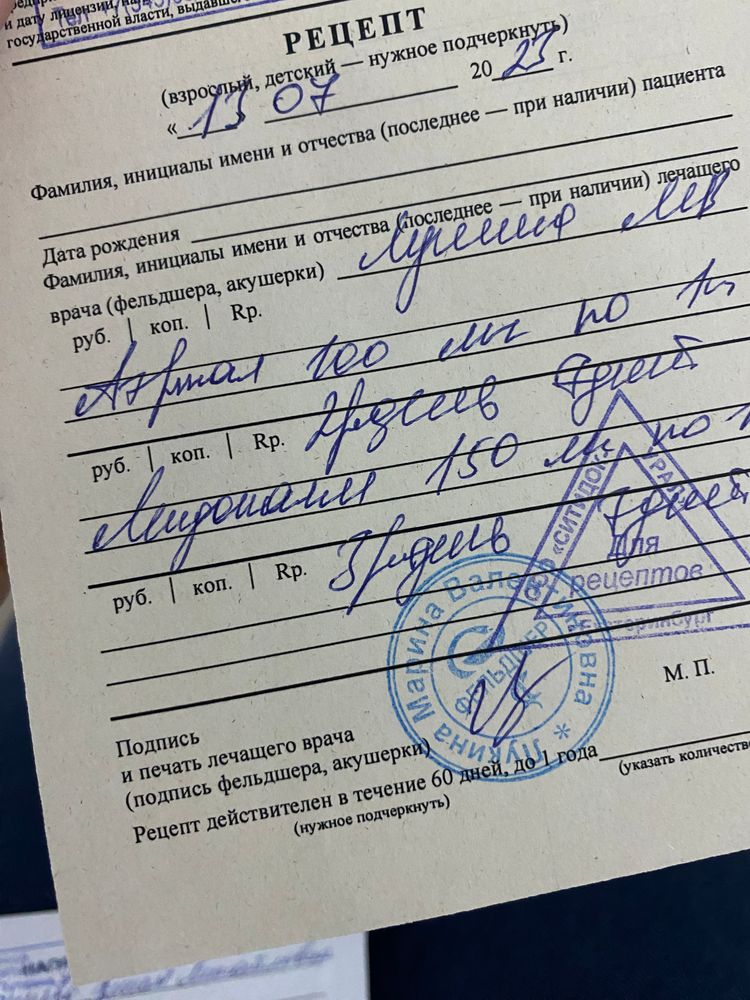 и дату лицензии, на
государственной власти, выдавшего
РЕЦЕПТ
(взрослый, детский — нужное подчеркнуть)
« 13 07 20 23 г.
Фамилия, инициалы имени и отчества (последнее — при наличии) пациента
Дата рождения
Фамилия, инициалы имени и отчества (последнее — при наличии) лечащего
врача (фельдшера, акушерки) Лукина МВ
руб. | коп. | Rp.
Аэртал 100 мг по 1т
2р день 7дней
руб. | коп. | Rp.
Мидокалм 150 мг по 1
3р день 7дней
руб. | коп. | Rp.
«СИТИДОК
Для
рецептов
Екатеринбург
Лукина Марина Валентиновна *
ФЕЛЬДШЕР
М. П.
Подпись
и печать лечащего врача
(подпись фельдшера, акушерки)
Рецепт действителен в течение 60 дней, до 1 года
(указать количество
(нужное подчеркнуть)